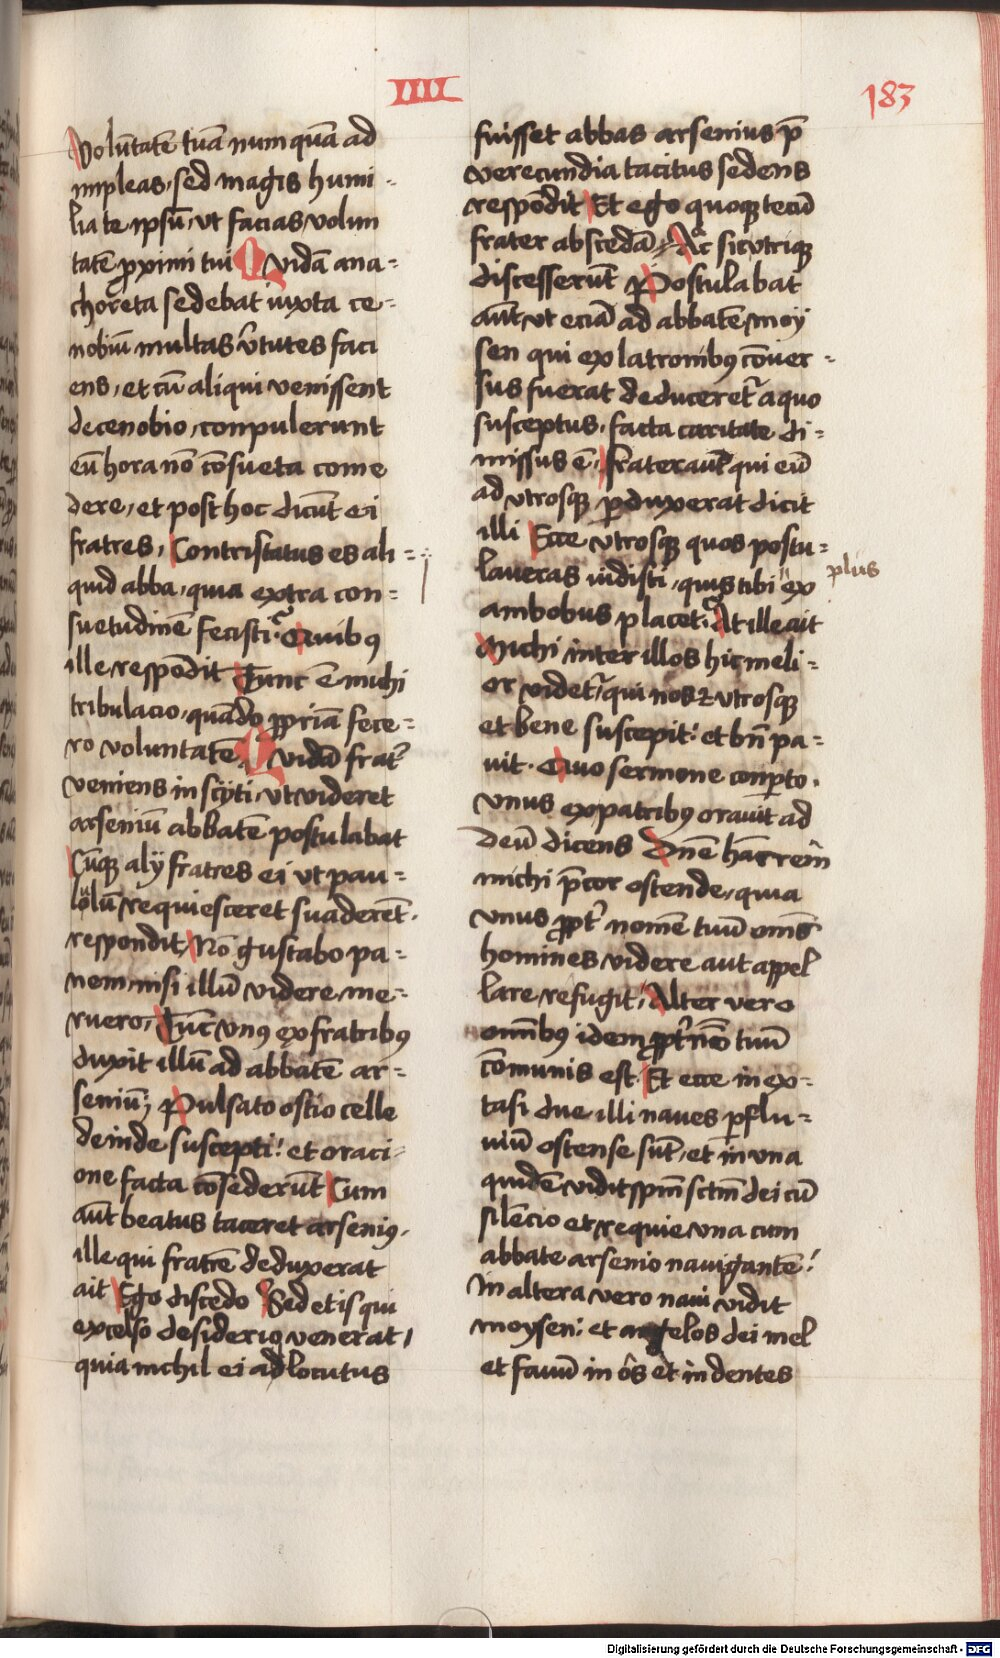 IIII
183
Volūtatē tuā num quā ad
impleas, sed magis humi-
lia te ipsū, ut facias volun
tatē ꝓximi tui Quidā ana-
choreta sedebat iuxta ce-
nobiū multas v̄tutes faci
ens, et cū aliqui venissent
de cenobio, conpulerunt
eū hora nō cōsueta come
dere, et post hoc dicūt ei
fratres, Contristatus es ali-
quid abba, quia extra con-
suetudinē fecisti? Quibꝯ
ille respōdit Tunc ē michi
tribulacio, quādo ꝓpriā fece-
ro voluntatē Quidā frat̄
veniens in scÿti, ut videret
arseniū abbatē postulabat
Cūqꝫ alÿ fratres ei ut pau-
lolū requiesceret suaderēt.
respondit, Nō gustabo pa-
nem, nisi illū videre me-
ruero, Tūc unꝯ ex fratribꝯ
duxit illū ad abbatē ar-
seniū; Pulsato ostio celle
deinde suscepti! et oraci-
one facta cōsederūt Cum
aūt beatus taceret arseniꝯ.
ille qui fratrē deduxerat
ait Ego discedo Sed et is qui
excelso desiderio venerat,
quia nichil ei adlocutus
fuisset abbas arsenius p̄
verecundia tacitus sedens
respōdit Et ego quoqꝫ tecū
frater abscedā Ac sic utriqꝫ
discesserūt Postulabat
aūt ut eciā ad abbatē moy
sen qui ex latronibꝯ cōver-
sus fuerat deduceret̄ a quo
susceptus, facta caritate di-
missus ē, frater aūt qui eū
ad utrosqꝫ ꝑduxerat dicit
illi Ecce utrosqꝫ quos postu-
laveras vidisti, quis tibi " ex
plus
ambobus placet? At ille ait
Michi inter illos hic meli-
or videt̄, qui nos ꝛ utrosqꝫ
et bene suscepit: et bn̄ pa-
vit. Quo sermone conꝑto.
unus ex patribꝯ oravit ad
deū dicens Dn̄e hāc rem̄
michi p̄cor ostende, quia
unus ꝓpt̄ nomē tuū om̄s
homines videre aut appel
lare refugit, Alter vero
om̄ibꝯ idem ꝓpt̄ nōē tuū
cōmunis est. Et ecce in ex-
tasi due illi naves ꝑ flu-
viū ostense sūt, et in una
quidē vidit spm̄ sctm̄ dei cū
silēcio et requie una cum
abbate arsenio navigantē!
In altera vero navi vidit
moysen: et angelos dei mel
et favū in ōs et in dentes
Digitalisierung gefördert durch die Deutsche Forschungsgemeinschaft - DFG